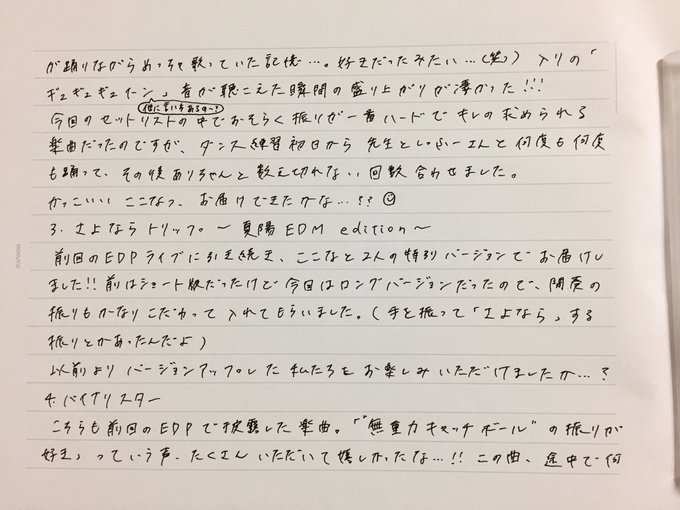 が踊りながらめっちゃ歌っていた記憶…。好きだったみたい…(笑) 入りの「
ギュギュギュイーン」音が聴こえた瞬間の盛り上がりが凄かった!!!
(他に言い方あるの〜?)
今回のセットリストの中でおそらく振りが一番ハードでキレの求められる
楽曲だったのですが、ダンス練習初日から先生としふーさんと何度も何度
も踊って、その後ありちゃんと数え切れない回数合わせました。
かっこいいここなつ、お届けできたかな…??☺
3. さよならトリップ 〜夏陽 EDM edition〜
前回のEDPライブに引き続き、ここなと2人の特別バージョンでお届けし
ました!! 前はショート版だったけど今回はロングバージョンだったので、間奏の
振りもかなりこだわって入れてもらいました。(手を振って「さよなら」する
振りとかあったんだよ)
以前よりバージョンアップした私たちをお楽しみいただけましたか…?
4. バイナリスター
こちらも前回のEDPで披露した楽曲。「"無重力キャッチボール"の振りが
好き」っていう声、たくさんいただいて嬉しかったな…!! この曲、途中で何
KOKUYO